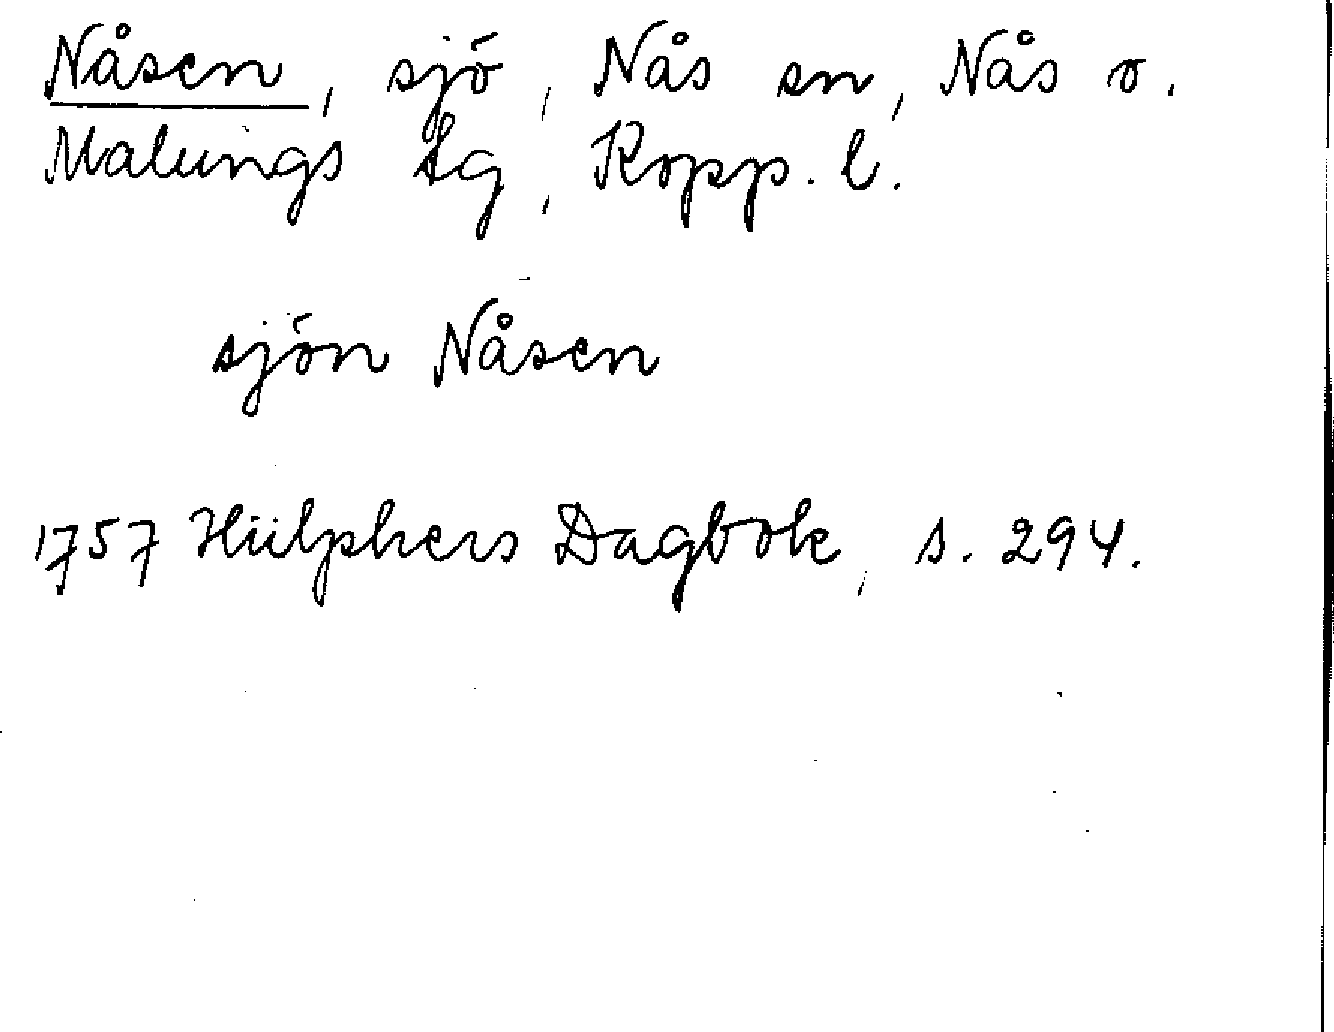 Nåsen, sjö, Nås sn, Nås o.
Malungs tg, Kopp. l.
sjön Nåsen
1757 Hülphers Dagbok, s. 294.